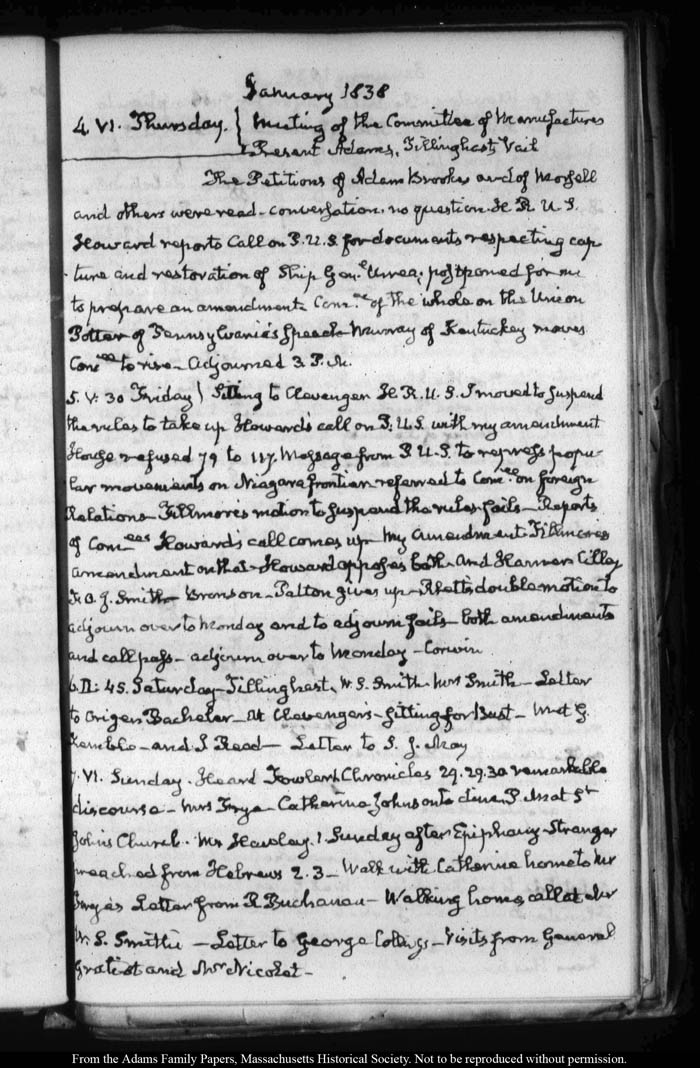 January 1838
4. VI. Thursday. } Meeting of the Committee of Manufactures
Present Adams, Tillinghast, Vail
The Petitions of Adam Brooks and of Morfell
and others were read - conversation. no question. H. R. U. S.
Howard reports Call on P. U. S. for documents respecting cap
ture and restoration of Ship Genl. Urrea; postponed for me
to prepare an amendment. Comee. of the whole on the Union
Potter of Pennsylvania's Speech - Murray of Kentucky moves
Comee to rise - Adjourned 3. P. M.
5. V: 30 Friday } Sitting to Clevenger H. R. U. S. I moved to suspend
the rules to take up Howard's call on P. U. S. with my amendment
House refused 79 to 117. Message from P. U. S. to repress popu-
lar movements on Niagara frontier referred to Comee. on foreign
Relations - Fillmore's motion to suspend the rules fails - Reports
of Comees Howard's call comes up - My Amendment - Fillmore's
amendment on that - Howard opposes both - And Hamer Cilley
F. O. J. Smith - Bronson - Patton gives up - Rhett's double motion to
adjourn over to Monday and to adjourn fails - both amendments
and call pass - adjourn over to Monday - Corwin
6. II: 45. Saturday - Tillinghast, W. S. Smith. Mrs Smith - Letter
to Origen Bachelor - At Clevenger's - sitting for Bust - Met G.
Kemble - and I Read - Letter to S. J. May
7. VI. Sunday. Heard Fowler 1 Chronicles 29. 29. 30 remarkable
discourse - Mrs Frye - Catharine Johnson to dine. P. M. at St
Johns Church. Mr Hawley. 1. Sunday after Epiphany - Stranger
preached from Hebrews 2. 3 - Walk with Catherine home to Mr
Frye's Letter from R Buchanan - Walking home, call at Mr
W. S. Smith's - Letter to George - Visits from General
Gratiot and Mr Nicolet -
From the Adams Family Papers, Massachusetts Historical Society. Not to be reproduced without permission.